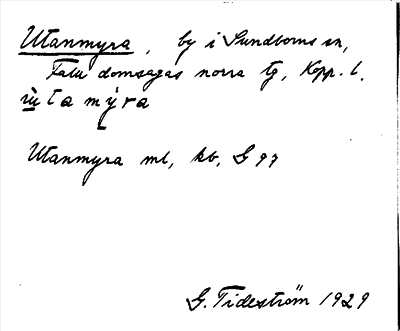 Utanmyra, by i Sundborns sn,
Falu domsagas norra tg, Kopp. l.
ù̀tamỳra
Utanmyra ml, kb, G 97
G. Tideström 1929